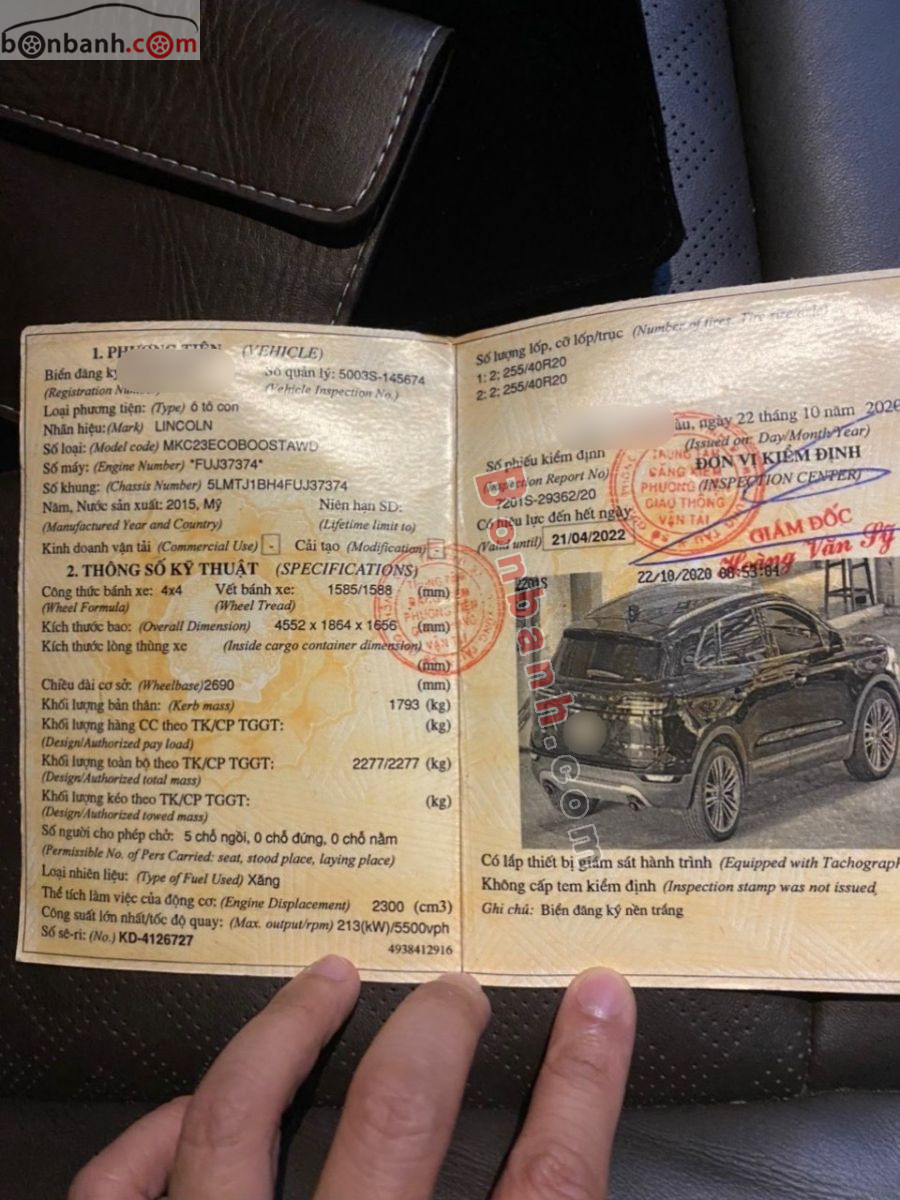 bonbanh.com
1. PHƯƠNG TIỆN (VEHICLE)
Biển đăng ký
Số quản lý: 5003S-145674
(Registration
(Vehicle Inspection No.)
Loại phương tiện: (Type) ô tô con
Nhãn hiệu: (Mark) LINCOLN
Số loại: (Model code) MKC23ECOBOOSTAWD
Số máy: (Engine Number) *FUJ37374*
Số khung: (Chassis Number) 5LMTJ1BH4FUJ37374
Năm, Nước sản xuất: 2015, Mỹ Niên hạn SD:
(Manufactured Year and Country) (Lifetime limit to)
Kinh doanh vận tải (Commercial Use) - Cải tạo (Modification) -
2. THÔNG SỐ KỸ THUẬT (SPECIFICATIONS)
Công thức bánh xe: 4x4 Vết bánh xe: 1585/1588 (mm)
(Wheel Formula) (Wheel Tread)
Kích thước bao: (Overall Dimension) 4552 x 1864 x 1656 (mm)
Kích thước lòng thùng xe (Inside cargo container dimension)
(mm)
Chiều dài cơ sở: (Wheelbase) 2690 (mm)
Khối lượng bản thân: (Kerb mass) 1793 (kg)
Khối lượng hàng CC theo TK/CP TGGT: (kg)
(Design/Authorized pay load)
Khối lượng toàn bộ theo TK/CP TGGT: 2277/2277 (kg)
(Design/Authorized total mass)
Khối lượng kéo theo TK/CP TGGT: (kg)
(Design/Authorized towed mass)
Số người cho phép chở: 5 chỗ ngồi, 0 chỗ đứng, 0 chỗ nằm
(Permissible No. of Pers Carried: seat, stood place, laying place)
Loại nhiên liệu: (Type of Fuel Used) Xăng
Thể tích làm việc của động cơ: (Engine Displacement) 2300 (cm3)
Công suất lớn nhất/tốc độ quay: (Max. output/rpm) 213(kW)/5500vph
Số sê-ri: (No.) KD-4126727
4938412916
Số lượng lốp, cỡ lốp/trục (Number of tires, Tire size/axle)
1: 2; 255/40R20
2: 2; 255/40R20
ngày 22 tháng 10 năm 2020
(Issued on: Day/Month/Year)
Số phiếu kiểm định
ĐƠN VỊ KIỂM ĐỊNH
(Inspection Report No)
(INSPECTION CENTER)
7201S-29362/20
Có hiệu lực đến hết ngày
(Valid until) 21/04/2022
TRUNG TÂM
ĐĂNG KIỂM
PHƯƠNG TIỆN
GIAO THÔNG
VẬN TẢI
GIÁM ĐỐC
Hoàng Văn Sỹ
7201S
22/10/2020 08:53:04
Bonbanh.com
Có lắp thiết bị giám sát hành trình (Equipped with Tachograph
Không cấp tem kiểm định (Inspection stamp was not issued
Ghi chú: Biển đăng ký nền trắng